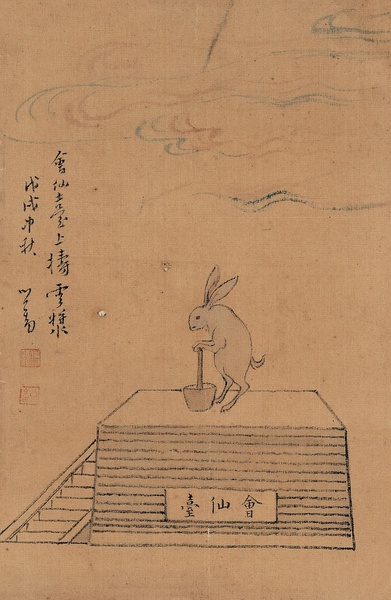 會仙臺上擣雲漿
戊戌中秋 心畬
會仙臺